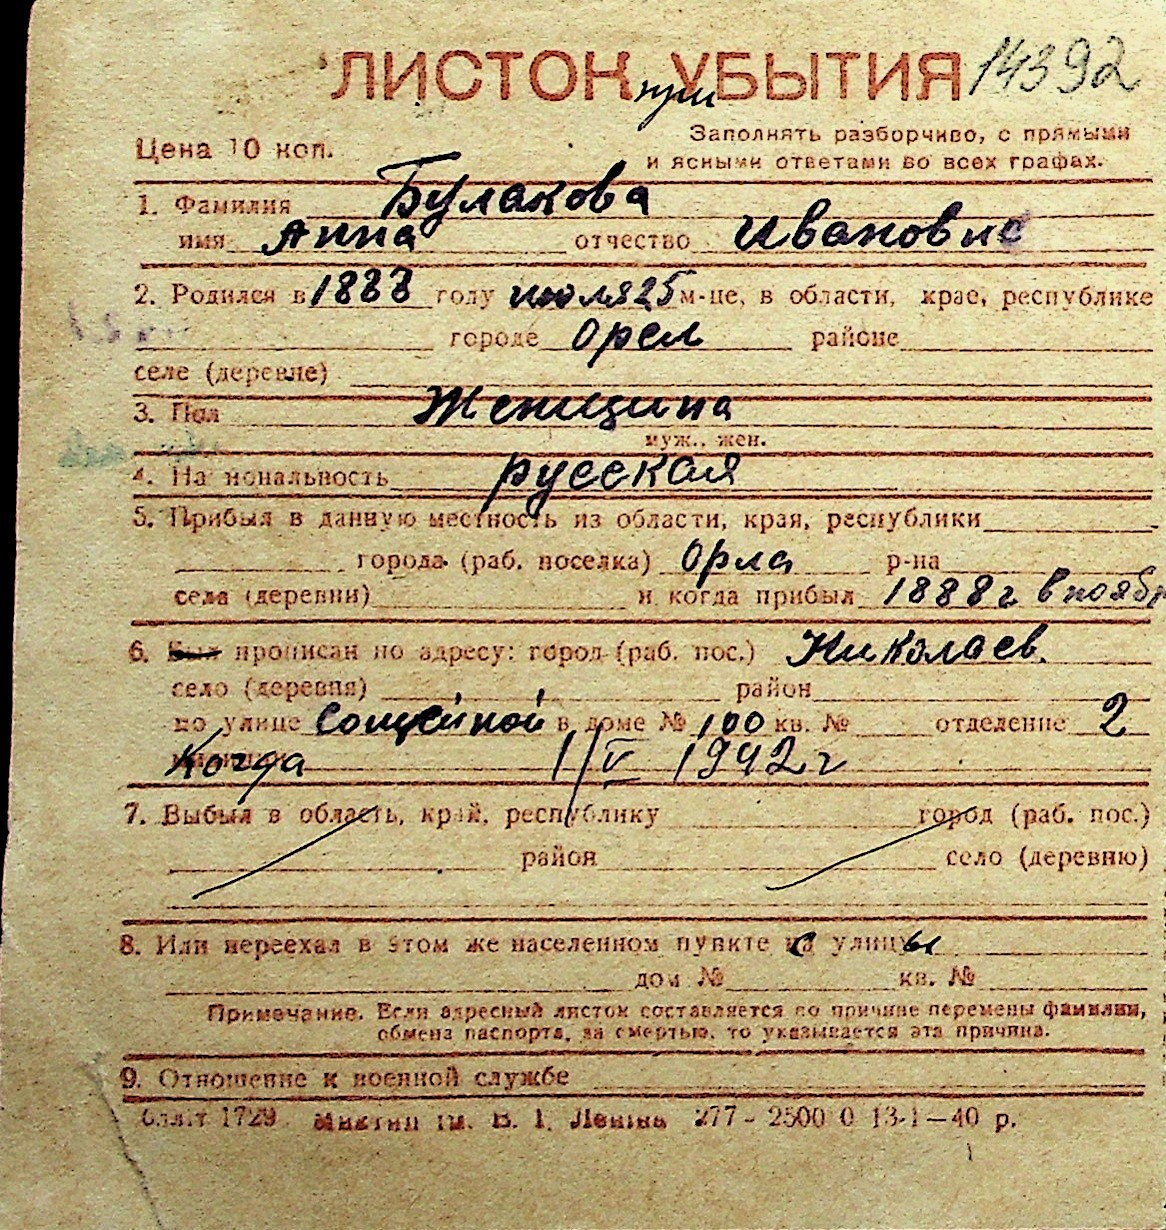 ЛИСТОК при УБЫТИЯ 14392
Цена 10 коп.
Заполнять разборчиво, с прямыми
и ясными ответами во всех графах.
1. Фамилия Булакова
имя Анна отчество Ивановне
2. Родился в 1888 году июля 25 м-це, в области, крае, республике
городе Орел районе
селе (деревне)
3. Пол Женщина
муж., жен.
4. Национальность русская
5. Прибыл в данную местность из области, края, республики
города (раб. поселка) Орла р-на
села (деревни) и когда прибыл 1888 г в ноябр
6. Был прописан по адресу: город (раб. пос.) Николаев.
село (деревня) район
по улице в доме № 100 кв. № отделение 2
Когда 1/V 1942 г
7. Выбыл в область, край, республику город (раб. пос.)
район село (деревню)
8. Или переехал в этом же населенном пункте с улицы
дом № кв. №
Примечание. Если адресный листок составляется по причине перемены фамилии,
обмена паспорта, за смертью, то указывается эта причина.
9. Отношение к военной службе
1729 ім. В. І. Леніна 277 - 2500 0 13-1-40 р.